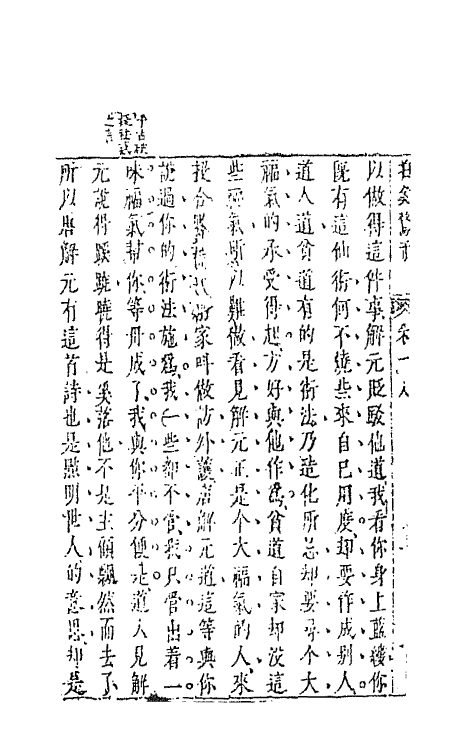 拍案驚奇 卷十八
以做得這件事解元貶駁他道我看你身上藍縷你
旣有這仙術何不燒些來自己用度却要作成別人
道人道貧道有的是術法乃造化所忌却要尋个大
福氣的承受得起方好與他作爲貧道自家却沒這
些福氣所以難做看見解元正是个大福氣的人來
投合夥我們術家叫做訪外護唐解元道這等與你
說過你的術法施爲我一些都不管我只管出着一
味福氣幫你等丹成了我與你平分便是道人見解
元說得蹊蹺曉得是奚落他不是主顧飄然而去了
所以唐解元有這首詩也是點明世人的意思却是